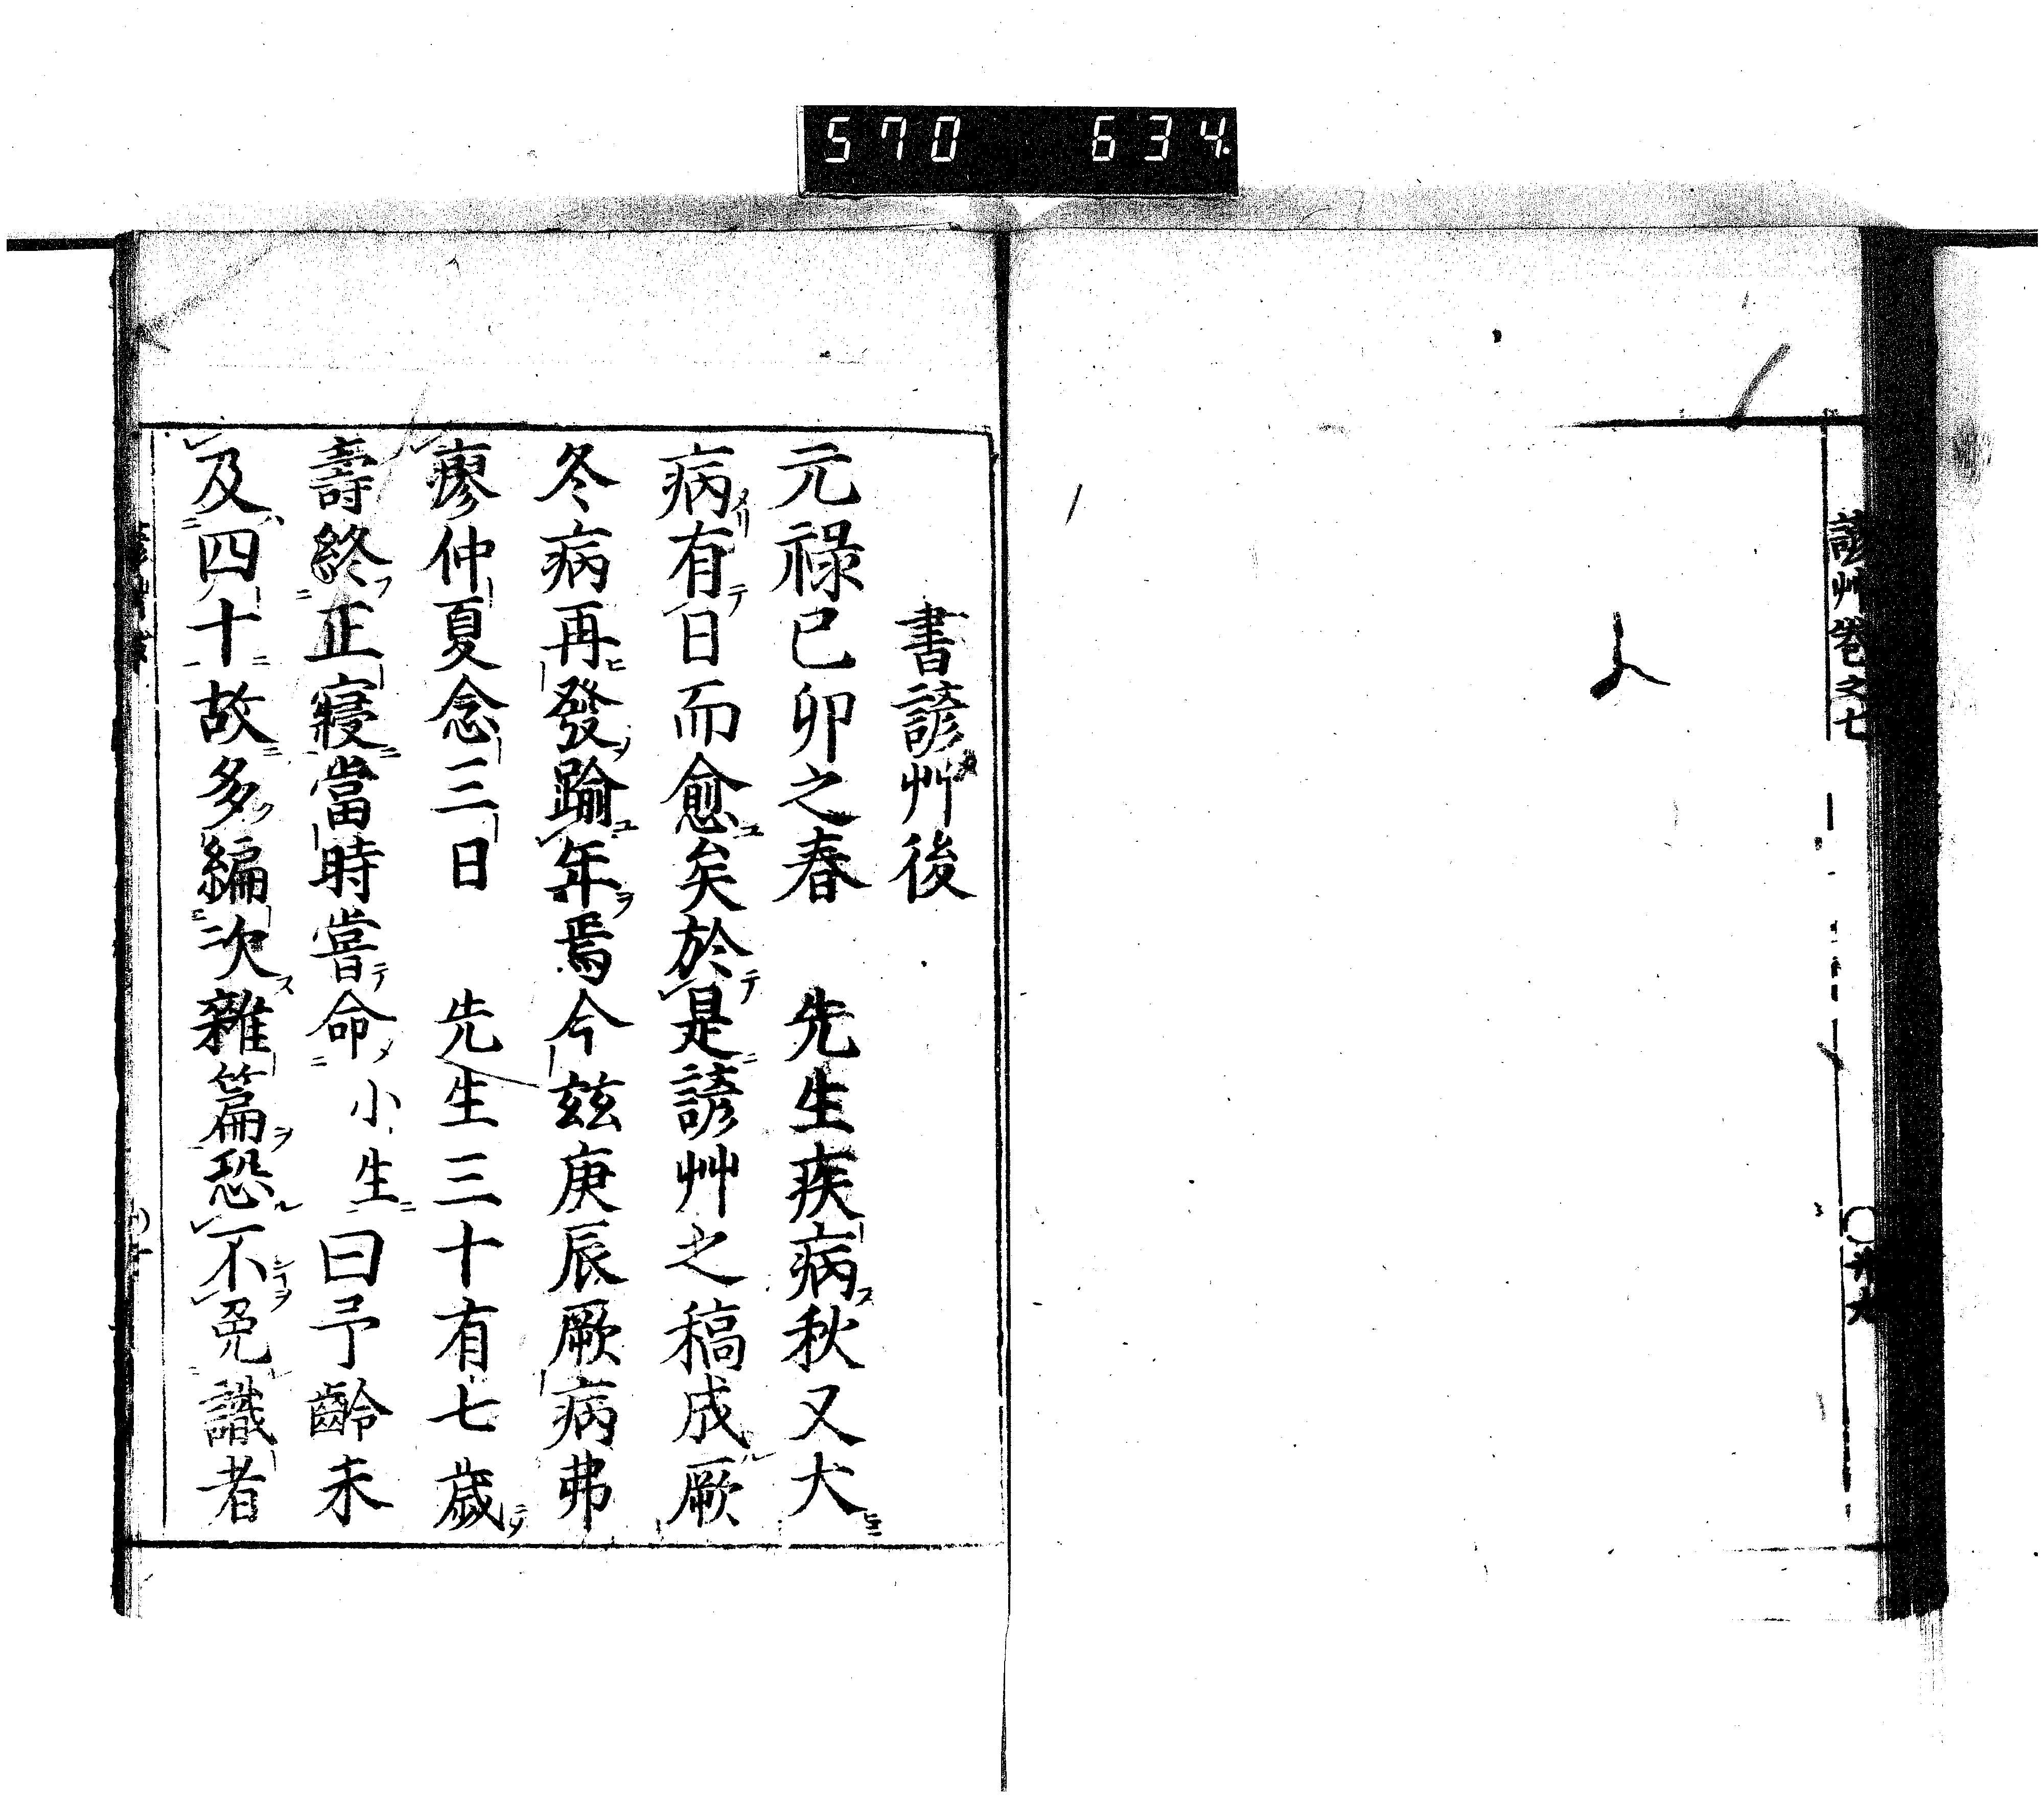 570 634
諺艸卷之七
書諺艸後
元祿己卯之春　先生疾病秋又大
病有日而愈矣於是諺艸之稿成厥
冬病再發踰年焉今茲庚辰厥病弗
瘳仲夏念三日　先生三十有七歲
壽終正寢當時嘗命小生曰予齡未
及四十故多編次雜篇恐不免識者